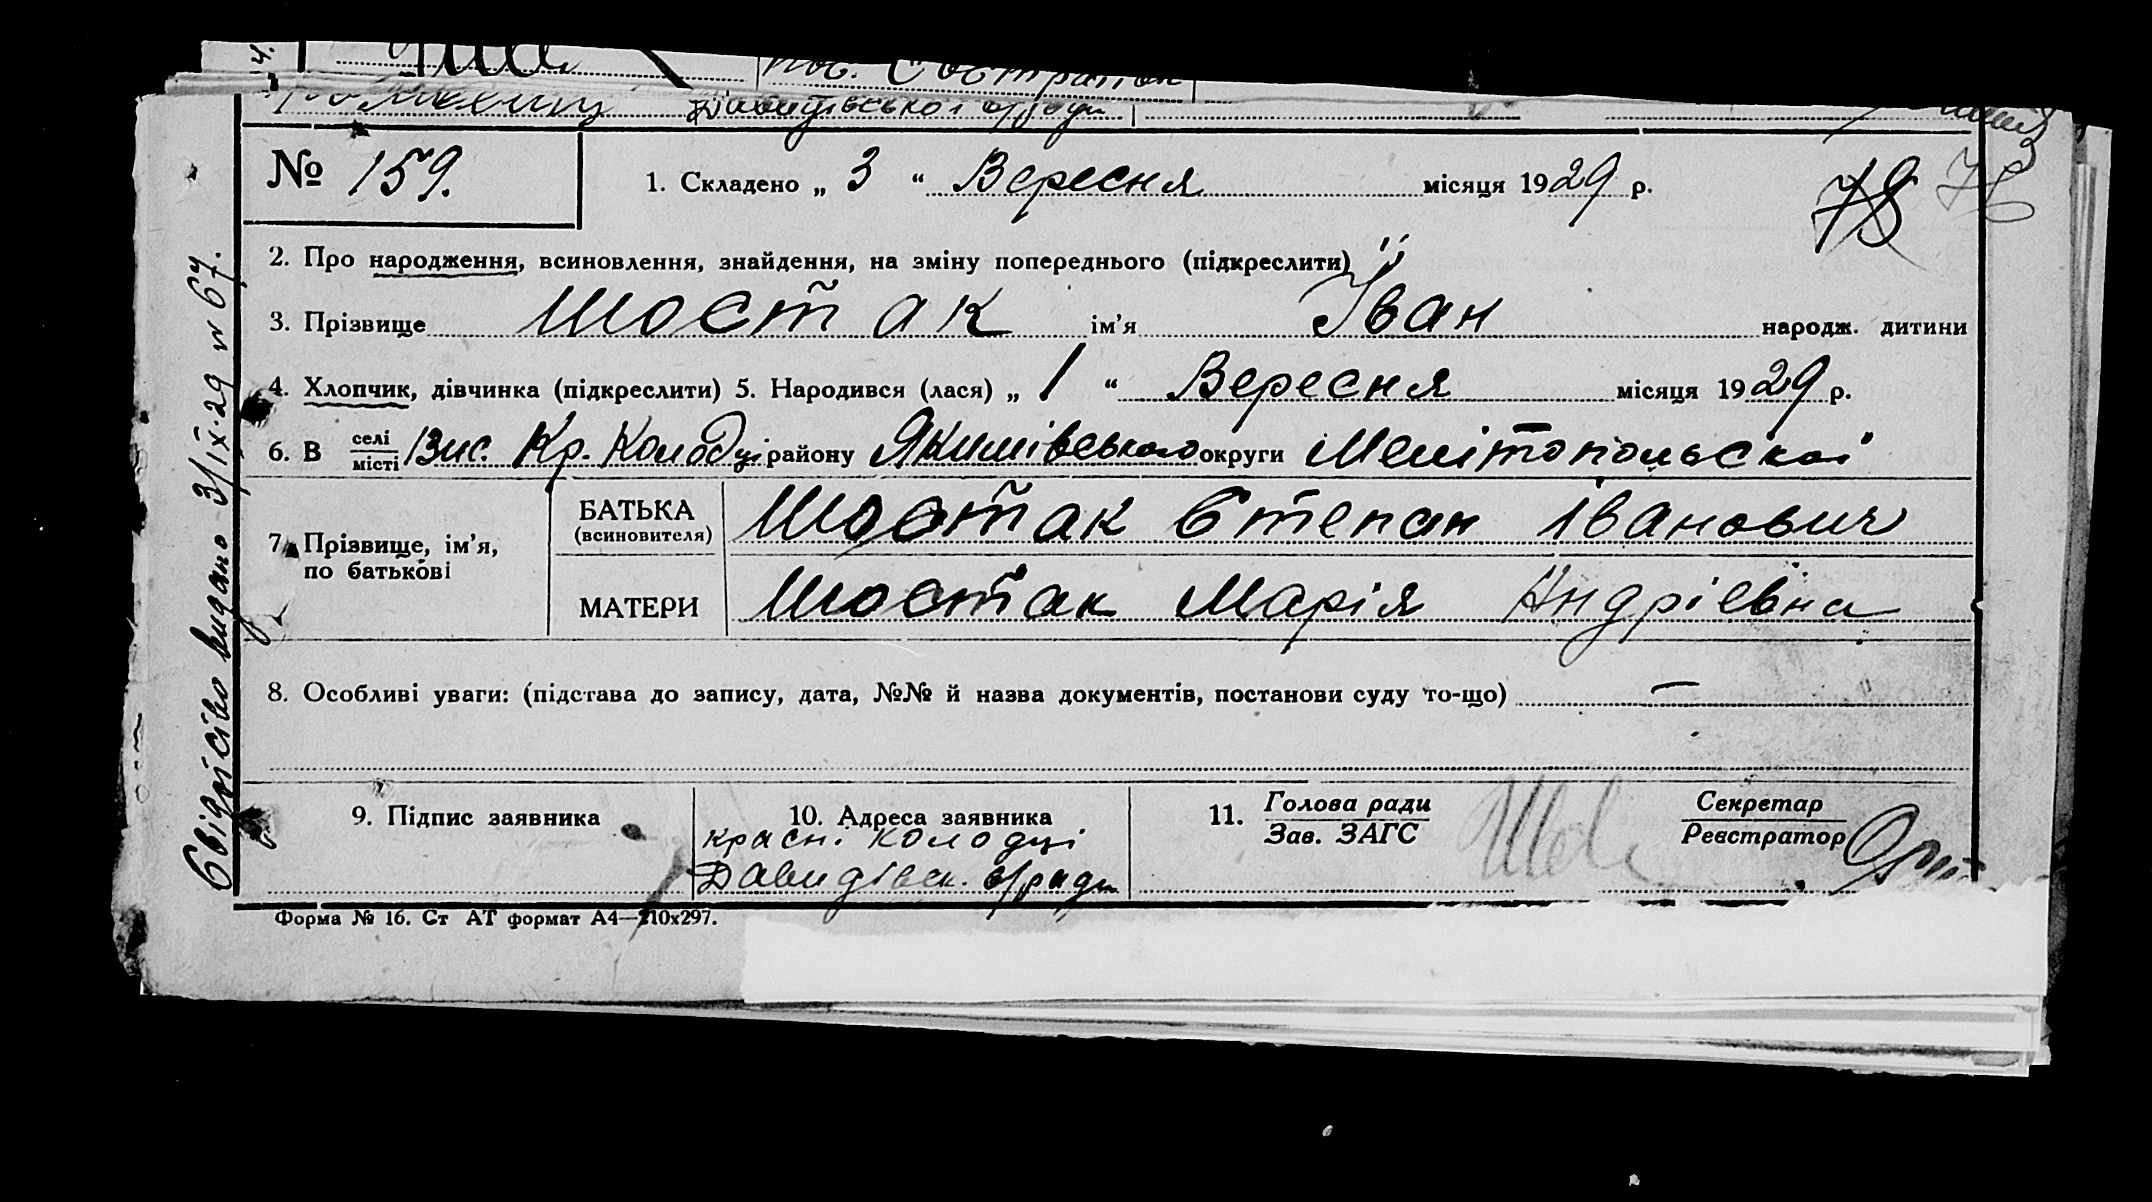 пос. Состратов
Давидівської с/ради
№ 159.
1. Складено „ 3 “ Вересня місяця 1929 р.
78 76
2. Про народження, всиновлення, знайдення, на зміну попереднього (підкреслити)
3. Прізвище Шостак ім’я Іван народж. дитини
4. Хлопчик, дівчинка (підкреслити) 5. Народився (лася) „ 1 “ Вересня місяця 1929 р.
6. В селі місті Вис. Кр. Колодці району Якимівського округи Мелітопольскої
7. Прізвище, ім’я, по батькові
БАТЬКА (всиновителя) Шостак Степан Іванович
МАТЕРИ Шостак Марія Андріевна
8. Особливі уваги: (підстава до запису, дата, №№ й назва документів, постанови суду то-що) —
9. Підпис заявника
10. Адреса заявника
красні колодці
Давидівск. с/ради
11. Голова ради
Зав. ЗАГС
Секретар
Реєстратор
Форма № 16. Ст АТ формат А4—210х297.
Свідоцтво видано 3/ІХ-29 № 67.